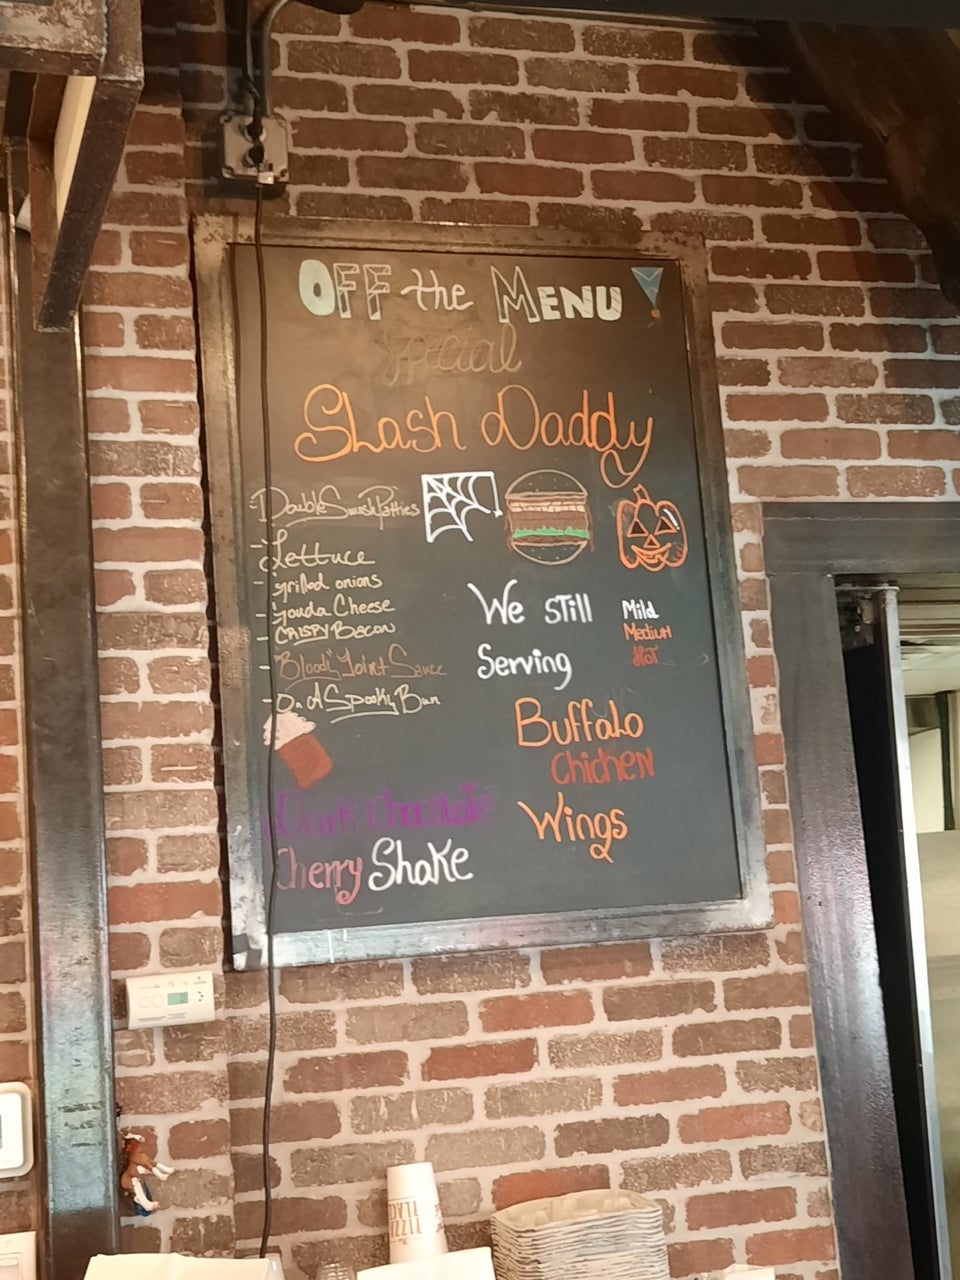 OFF the MENU
Special
SLash Daddy
- Double Smash Patties
- Lettuce
- Grilled onions
- Gouda Cheese
- CRISPY BACON
- "Bloody" Joint Sauce
- On A Spooky Bun
We STill
Serving
Mild
Medium
HoT
Buffalo
Chicken
Wings
Dark Chocolate
Cherry Shake